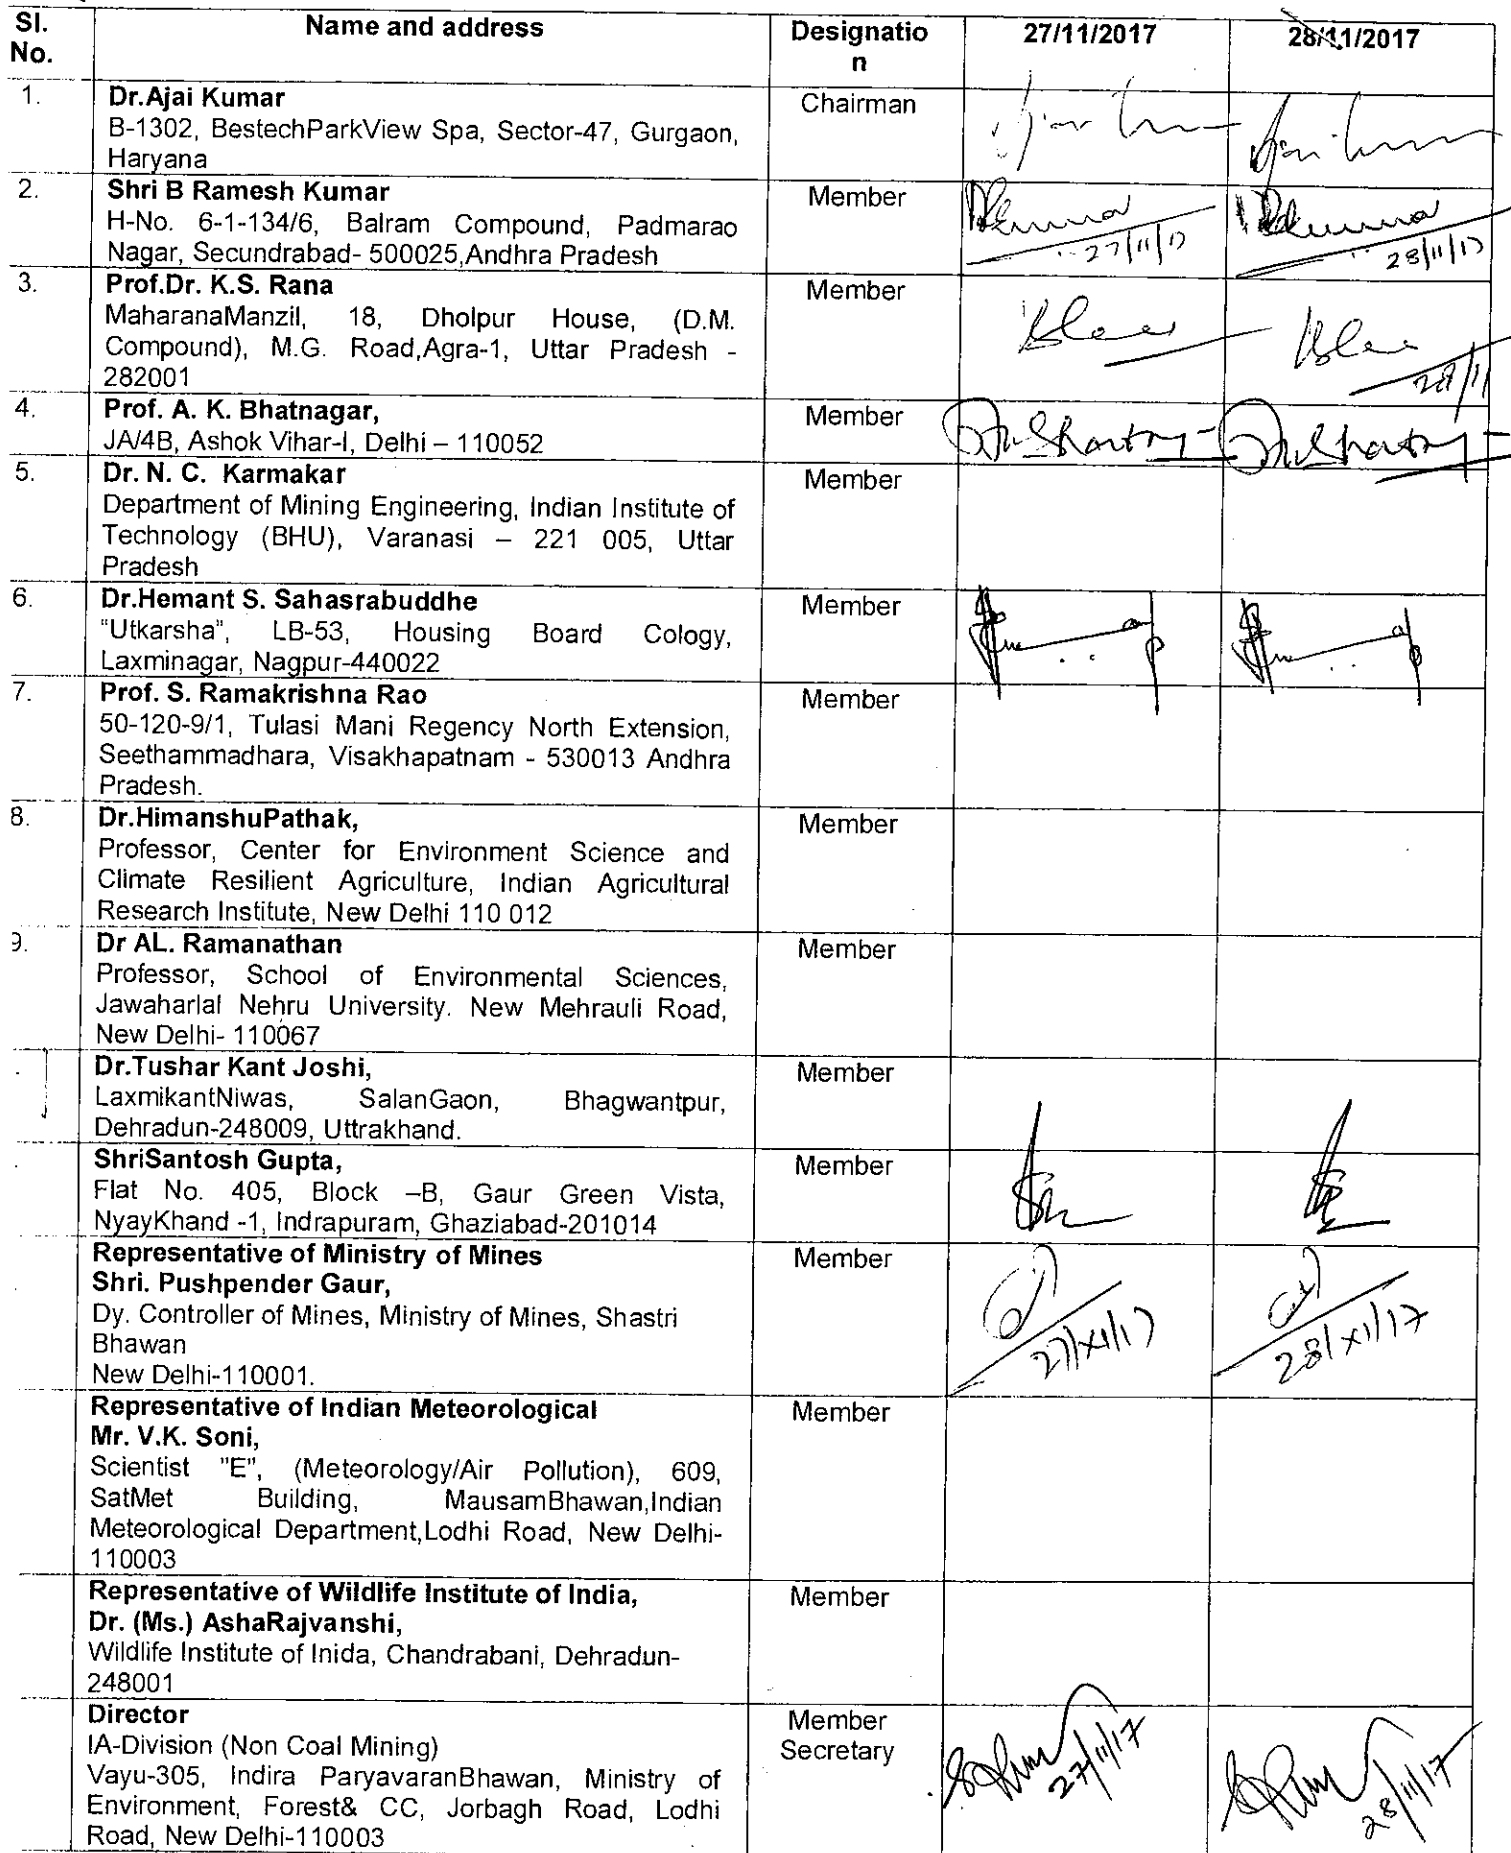 Sl. No. Name and address Designatio n 27/11/2017 28/11/2017
1. Dr.Ajai Kumar Chairman
B-1302, BestechParkView Spa, Sector-47, Gurgaon,
Haryana
2. Shri B Ramesh Kumar Member
H-No. 6-1-134/6, Balram Compound, Padmarao
Nagar, Secundrabad- 500025,Andhra Pradesh
27/11/17 28/11/17
3. Prof.Dr. K.S. Rana Member
MaharanaManzil, 18, Dholpur House, (D.M.
Compound), M.G. Road,Agra-1, Uttar Pradesh -
282001
28/11
4. Prof. A. K. Bhatnagar, Member
JA/4B, Ashok Vihar-I, Delhi – 110052
5. Dr. N. C. Karmakar Member
Department of Mining Engineering, Indian Institute of
Technology (BHU), Varanasi – 221 005, Uttar
Pradesh
6. Dr.Hemant S. Sahasrabuddhe Member
"Utkarsha", LB-53, Housing Board Cology,
Laxminagar, Nagpur-440022
7. Prof. S. Ramakrishna Rao Member
50-120-9/1, Tulasi Mani Regency North Extension,
Seethammadhara, Visakhapatnam - 530013 Andhra
Pradesh.
8. Dr.HimanshuPathak, Member
Professor, Center for Environment Science and
Climate Resilient Agriculture, Indian Agricultural
Research Institute, New Delhi 110 012
9. Dr AL. Ramanathan Member
Professor, School of Environmental Sciences,
Jawaharlal Nehru University. New Mehrauli Road,
New Delhi- 110067
Dr.Tushar Kant Joshi, Member
LaxmikantNiwas, SalanGaon, Bhagwantpur,
Dehradun-248009, Uttrakhand.
ShriSantosh Gupta, Member
Flat No. 405, Block –B, Gaur Green Vista,
NyayKhand -1, Indrapuram, Ghaziabad-201014
Representative of Ministry of Mines Member
Shri. Pushpender Gaur,
Dy. Controller of Mines, Ministry of Mines, Shastri
Bhawan
New Delhi-110001.
27/XI/17 28/XI/17
Representative of Indian Meteorological Member
Mr. V.K. Soni,
Scientist "E", (Meteorology/Air Pollution), 609,
SatMet Building, MausamBhawan,Indian
Meteorological Department,Lodhi Road, New Delhi-
110003
Representative of Wildlife Institute of India, Member
Dr. (Ms.) AshaRajvanshi,
Wildlife Institute of Inida, Chandrabani, Dehradun-
248001
Director Member Secretary
IA-Division (Non Coal Mining)
Vayu-305, Indira ParyavaranBhawan, Ministry of
Environment, Forest& CC, Jorbagh Road, Lodhi
Road, New Delhi-110003
27/11/17 28/11/17